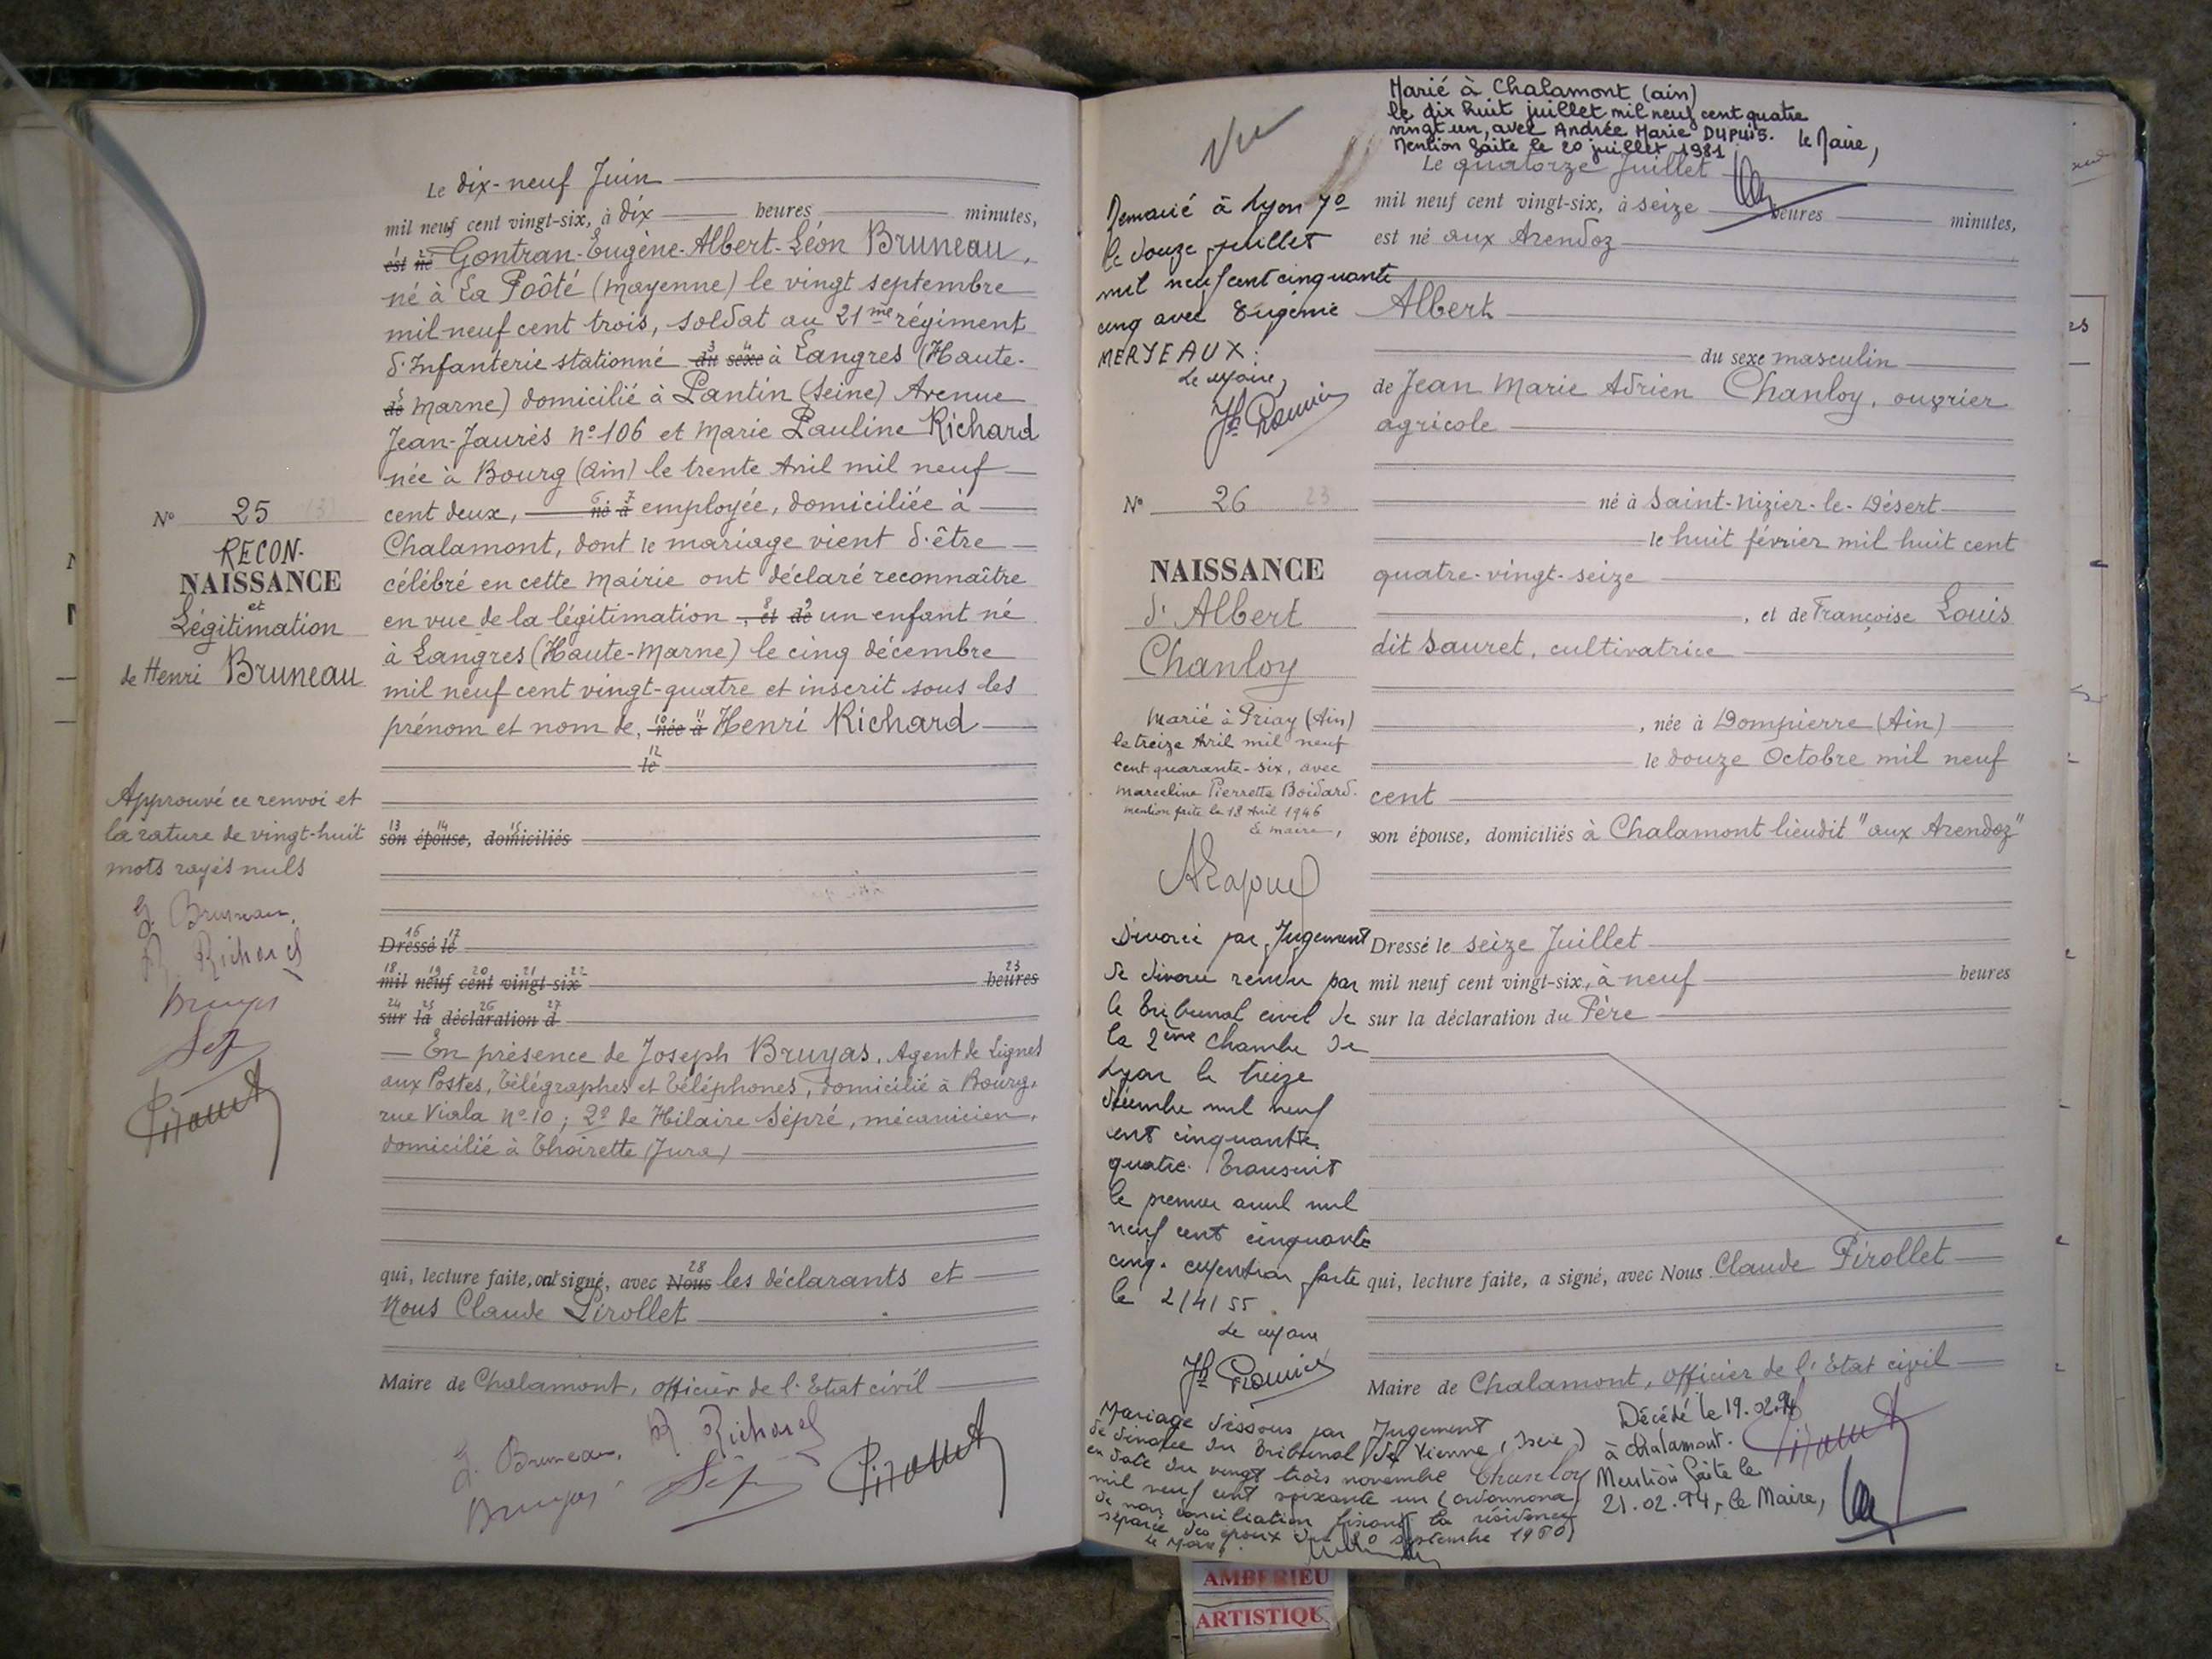 Le dix-neuf Juin
mil neuf cent vingt-six, à dix heures minutes,
est né Gontran-Eugène-Albert-Léon Bruneau,
né à La Poôté (Mayenne) le vingt septembre
mil neuf cent trois, soldat au 21me régiment
d'Infanterie stationné 3 du 4 sexe à Langres (Haute-
5 de Marne) domicilié à Pantin (Seine) Avenue
Jean-Jaurès n° 106 et Marie Pauline Richard
née à Bourg (Ain) le trente Avril mil neuf
cent deux, 6 né 7 à employée, domiciliée à
Chalamont, dont le mariage vient d'être
célébré en cette Mairie ont déclaré reconnaître
en vue de la légitimation 8 , et 9 de un enfant né
à Langres (Haute-Marne) le cinq décembre
mil neuf cent vingt-quatre et inscrit sous les
prénom et nom de, 10 née 11 à Henri Richard
12 le
13 son 14 épouse, 15 domiciliés
16 Dressé 17 le
18 mil 19 neuf 20 cent 21 vingt 22 six 23 heures
24 sur 25 la 26 déclaration 27 d
En présence de Joseph Bruyas, Agent de Lignes
aux Postes, Télégraphes et Téléphones, domicilié à Bourg,
rue Viala n° 10 ; 2° de Hilaire Sépré, mécanicien,
domicilié à Thoirette (Jura)
qui, lecture faite, ont signé, avec 28 Nous les déclarants et
Nous Claude Pirollet
Maire de Chalamont, officier de l'Etat civil
G. Bruneau, Richard
Bruyas
N° 25
RECON-
NAISSANCE
et
Légitimation
de Henri Bruneau
Approuvé ce renvoi et
la rature de vingt-huit
mots rayés nuls
G. Bruneau,
Richard
Bruyas
Marié à Chalamont (ain)
le dix huit juillet mil neuf cent quatre
vingt un, avec Andrée Marie DUPUIS.
Mention faite le 20 juillet 1981 le Maire,
Vu
Le quatorze Juillet
mil neuf cent vingt-six, à seize heures minutes,
est né aux Arendoz
Albert
du sexe masculin
de Jean Marie Adrien Chanloy, ouvrier
agricole
né à Saint-Nizier-le-Désert
le huit février mil huit cent
quatre-vingt-seize
, et de Françoise Louis
dit Sauret, cultivatrice
, née à Dompierre (Ain)
le douze Octobre mil neuf
cent
son épouse, domiciliés à Chalamont lieudit "aux Arendoz"
Dressé le seize Juillet
mil neuf cent vingt-six, à neuf heures
sur la déclaration du Père
qui, lecture faite, a signé, avec Nous Claude Pirollet
Maire de Chalamont, officier de l'Etat civil
Remarié à Lyon 7°
le douze juillet
mil neuf cent cinquante
cinq avec Eugénie
MERJEAUX:
Le Maire,
N° 26 23
NAISSANCE
d'Albert
Chanloy
Marié à Priay (Ain)
le treize Avril mil neuf
cent quarante-six, avec
Marceline Pierrette Boidard.
mention faite le 18 Avril 1946
Le maire,
Divorcé par Jugement
de divorce rendu par
le Tribunal civil de
la 2ème Chambre de
Lyon le treize
décembre mil neuf
cent cinquante
quatre. Transcrit
le premier avril mil
neuf cent cinquante
cinq. Mention faite
le 2/4/55.
Le Maire
Mariage dissous par Jugement
de divorce du Tribunal de Vienne (Isère)
en date du vingt trois novembre
mil neuf cent soixante un (ordonnance
de non conciliation fixant la résidence
séparée des époux du 20 septembre 1960)
Le Maire,
Chanloy
Décédé le 19.02.94
à Chalamont.
Mention faite le
21.02.94, le Maire,
AMBERIEU
ARTISTIQU